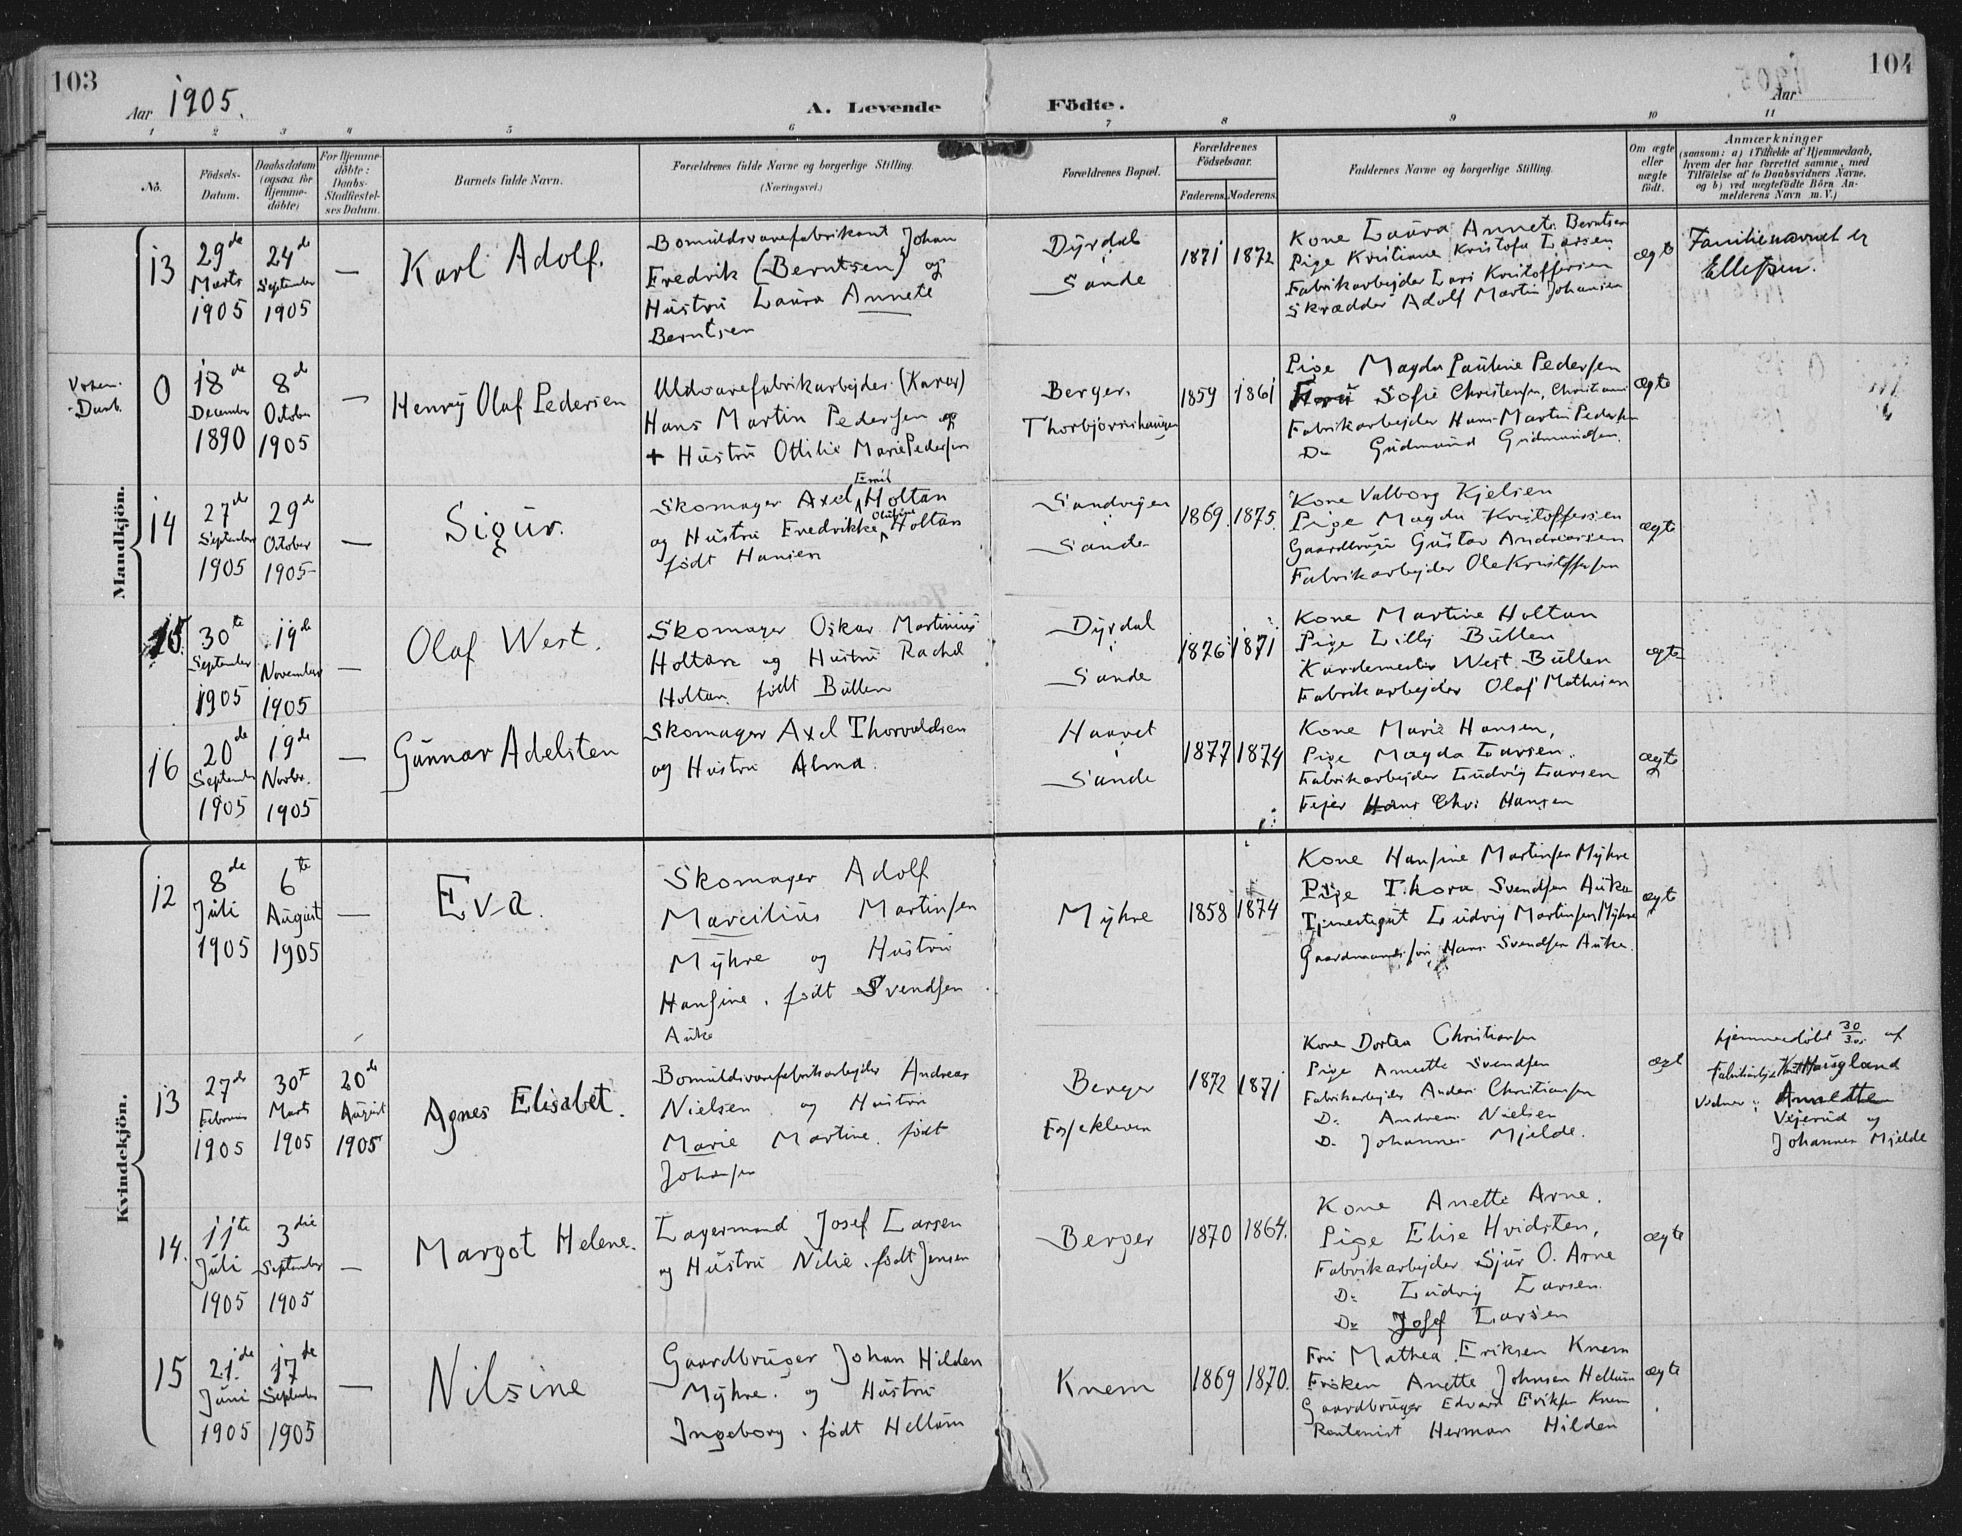 103
Aar 1905.
A. Levende Födte.
104
Aar
1 2 3 4 5 6 7 8 9 10 11
No.
Födsels-
Datum.
Daabsdatum
(ogsaa for
Hjemme-
döbte)
For Hjemme-
döbte:
Daabs-
Stadfæstel-
ses Datum.
Barnets fulde Navn.
Forældrenes fulde Navne og borgerlige Stilling.
(Næringsvei.)
Forældrenes Bopæl.
Forældrenes
Födselsaar.
Faderens. Moderens.
Faddernes Navne og borgerlig Stilling.
Om ægte
eller
uægte
födt.
Anmærkninger
(saasom: a) i Tilfælde af Hjemmedaab,
hvem der har forrettet samme, med
Tilföielse af to Daabsvidners Navne.
og b) ved uægtefödte Börn An-
melderens Navn m. V.)
Mandkjön.
13
29de
Marts
1905
24de
September
1905
—
Karl Adolf.
Bomuldsvarefabrikant Johan
Fredrik (Berntsen) og
Hustru Laura Annete
Berntsen
Dyrdal
Sande
1871 1872
Kone Laura Annete Berntsen
Pige Kristiane Kristofa Larsen
Fabrikarbejder Lars Kristoffersen
Skrædder Adolf Martin Johansen
ægte
Familienavnet er
Ellefsen.
Voksen-
Daab.
0
18de
December
1890
8de
October
1905
—
Henry Olaf Pedersen
Uldvarefabrikarbejder (Karver)
Hans Martin Pedersen og
+ Hustru Ottilie Marie Pedersen
Berger.
Thorbjørnshaugen
1859 1861
Pige Magda Pauline Pedersen
Sofie Christensen,
Fabrikarbejder Hans Martin Pedersen
Do Gudmund Gudmundsen.
ægte
14
27de
September
1905
29de
October
1905
—
Sigur.
Skomager Axel Emil Holtan
og Hustru Fredrikke Olufine Holtan
født Hansen
Sandvigen
Sande
1869. 1875.
Kone Valborg Kjelsen
Pige Magda Kristoffersen
Gaardbruger Gustav Andreassen
Fabrikarbejder Ole Kristoffersen
ægte
15.
30te
September
1905
19de
November
1905
—
Olaf West.
Skomager Oskar Martinius
Holtan og Hustru Rachel
Holtan født Bullen
Dyrdal
Sande
1876 1871
Kone Martine Holtan
Pige Lilly Bullen
Kardemester West Bullen
Fabrikarbejder Olaf Mathisen
ægte
16
20de
September
1905
19de
Novbr.
1905
—
Gunnar Adelsten
Skomager Axel Thorvaldsen
og Hustru Alma.
Haavet
Sande
1877 1874
Kone Marie Hansen,
Pige Magda Larsen.
Fabrikarbejder Ludvig Larsen
Fejer Hans Chr. Hansen
ægte
Kvindekjön.
12
8de
Juli
1905
6te
August
1905
—
Eva.
Skomager Adolf
Marcilius Martinsen
Myhre og Hustru
Hansine. født Svendsen
Auke
Myhre
1858 1874
Kone Hansine Martinsen Myhre
Pige Thora Svendsen Auke
Tjenestegut Ludvig Martinsen Myhre
Gaardmandssøn Hans Svendsen Auke.
ægte
13
27de
Februar
1905
30te
Marts
1905
20de
August
1905
Agnes Elisabet.
Bomuldsvarefabrikarbejder Andreas
Nielsen og Hustru
Marie Martine. født
Johansen
Berger
Fossekleven
1872 1871
Kone Dortea Christiansen
Pige Annette Svendsen
Fabrikarbejder Anders Christiansen
Do Andreas Nielsen
Do Johannes Mjelde.
ægte
hjemmedøbt 30/3 05 af
Haugland
Vidner: Annette
Vejerud og
Johannes Mjelde
14.
11te
Juli
1905
3die
September
1905
—
Margot Helene.
Lagermand Josef Larsen
og Hustru Nilie. født Jensen
Berger
1870 1864.
Kone Anette Arne.
Pige Elise Hvidsten,
Fabrikarbejder Sjur O. Arne
Do Ludvig Larsen.
Do Josef Larsen
ægte
15
21de
Juni
1905
17de
September
1905
—
Nilsine
Gaardbruger Johan Hilden
Myhre. og Hustru
Ingeborg. født Hellum
Knem
1869 1870.
Fru Mathea Eriksen Knem
Frøken Anette Johnsen Hellum
Gaardbruger Edvard Eriksen Knem
Kontorist Herman Hilden
ægte.